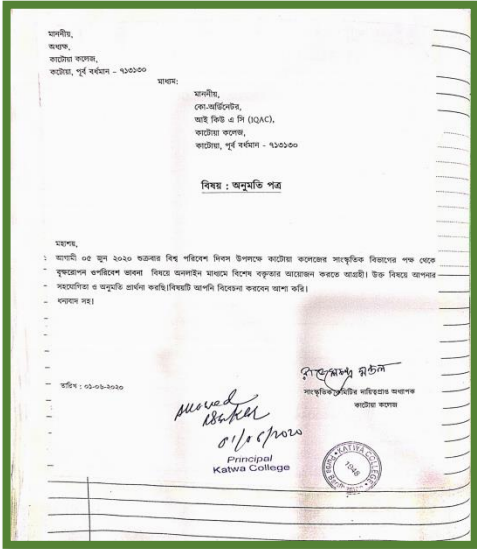 মাননীয়,
অধ্যক্ষ,
কাটোয়া কলেজ,
কাটোয়া, পূর্ব বর্ধমান - ৭১৩১৩০
মাধ্যম:
মাননীয়,
কো-অর্ডিনেটর,
আই কিউ এ সি (IQAC),
কাটোয়া কলেজ,
কাটোয়া, পূর্ব বর্ধমান - ৭১৩১৩০
বিষয় : অনুমতি পত্র
মহাশয়,
আগামী ০৫ জুন ২০২০ শুক্রবার বিশ্ব পরিবেশ দিবস উপলক্ষে কাটোয়া কলেজের সাংস্কৃতিক বিভাগের পক্ষ থেকে
বৃক্ষরোপন ওপরিবেশ ভাবনা বিষয়ে অনলাইন মাধ্যমে বিশেষ বক্তৃতার আয়োজন করতে আগ্রহী। উক্ত বিষয়ে আপনার
সহযোগিতা ও অনুমতি প্রার্থনা করছি।বিষয়টি আপনি বিবেচনা করবেন আশা করি।
ধন্যবাদ সহ।
তারিখ : ০১-০৬-২০২০
সাংস্কৃতিক কমিটির দায়িত্বপ্রাপ্ত অধ্যাপক
কাটোয়া কলেজ
01/06/2020
Principal
Katwa College
KATWA COLLEGE
1948